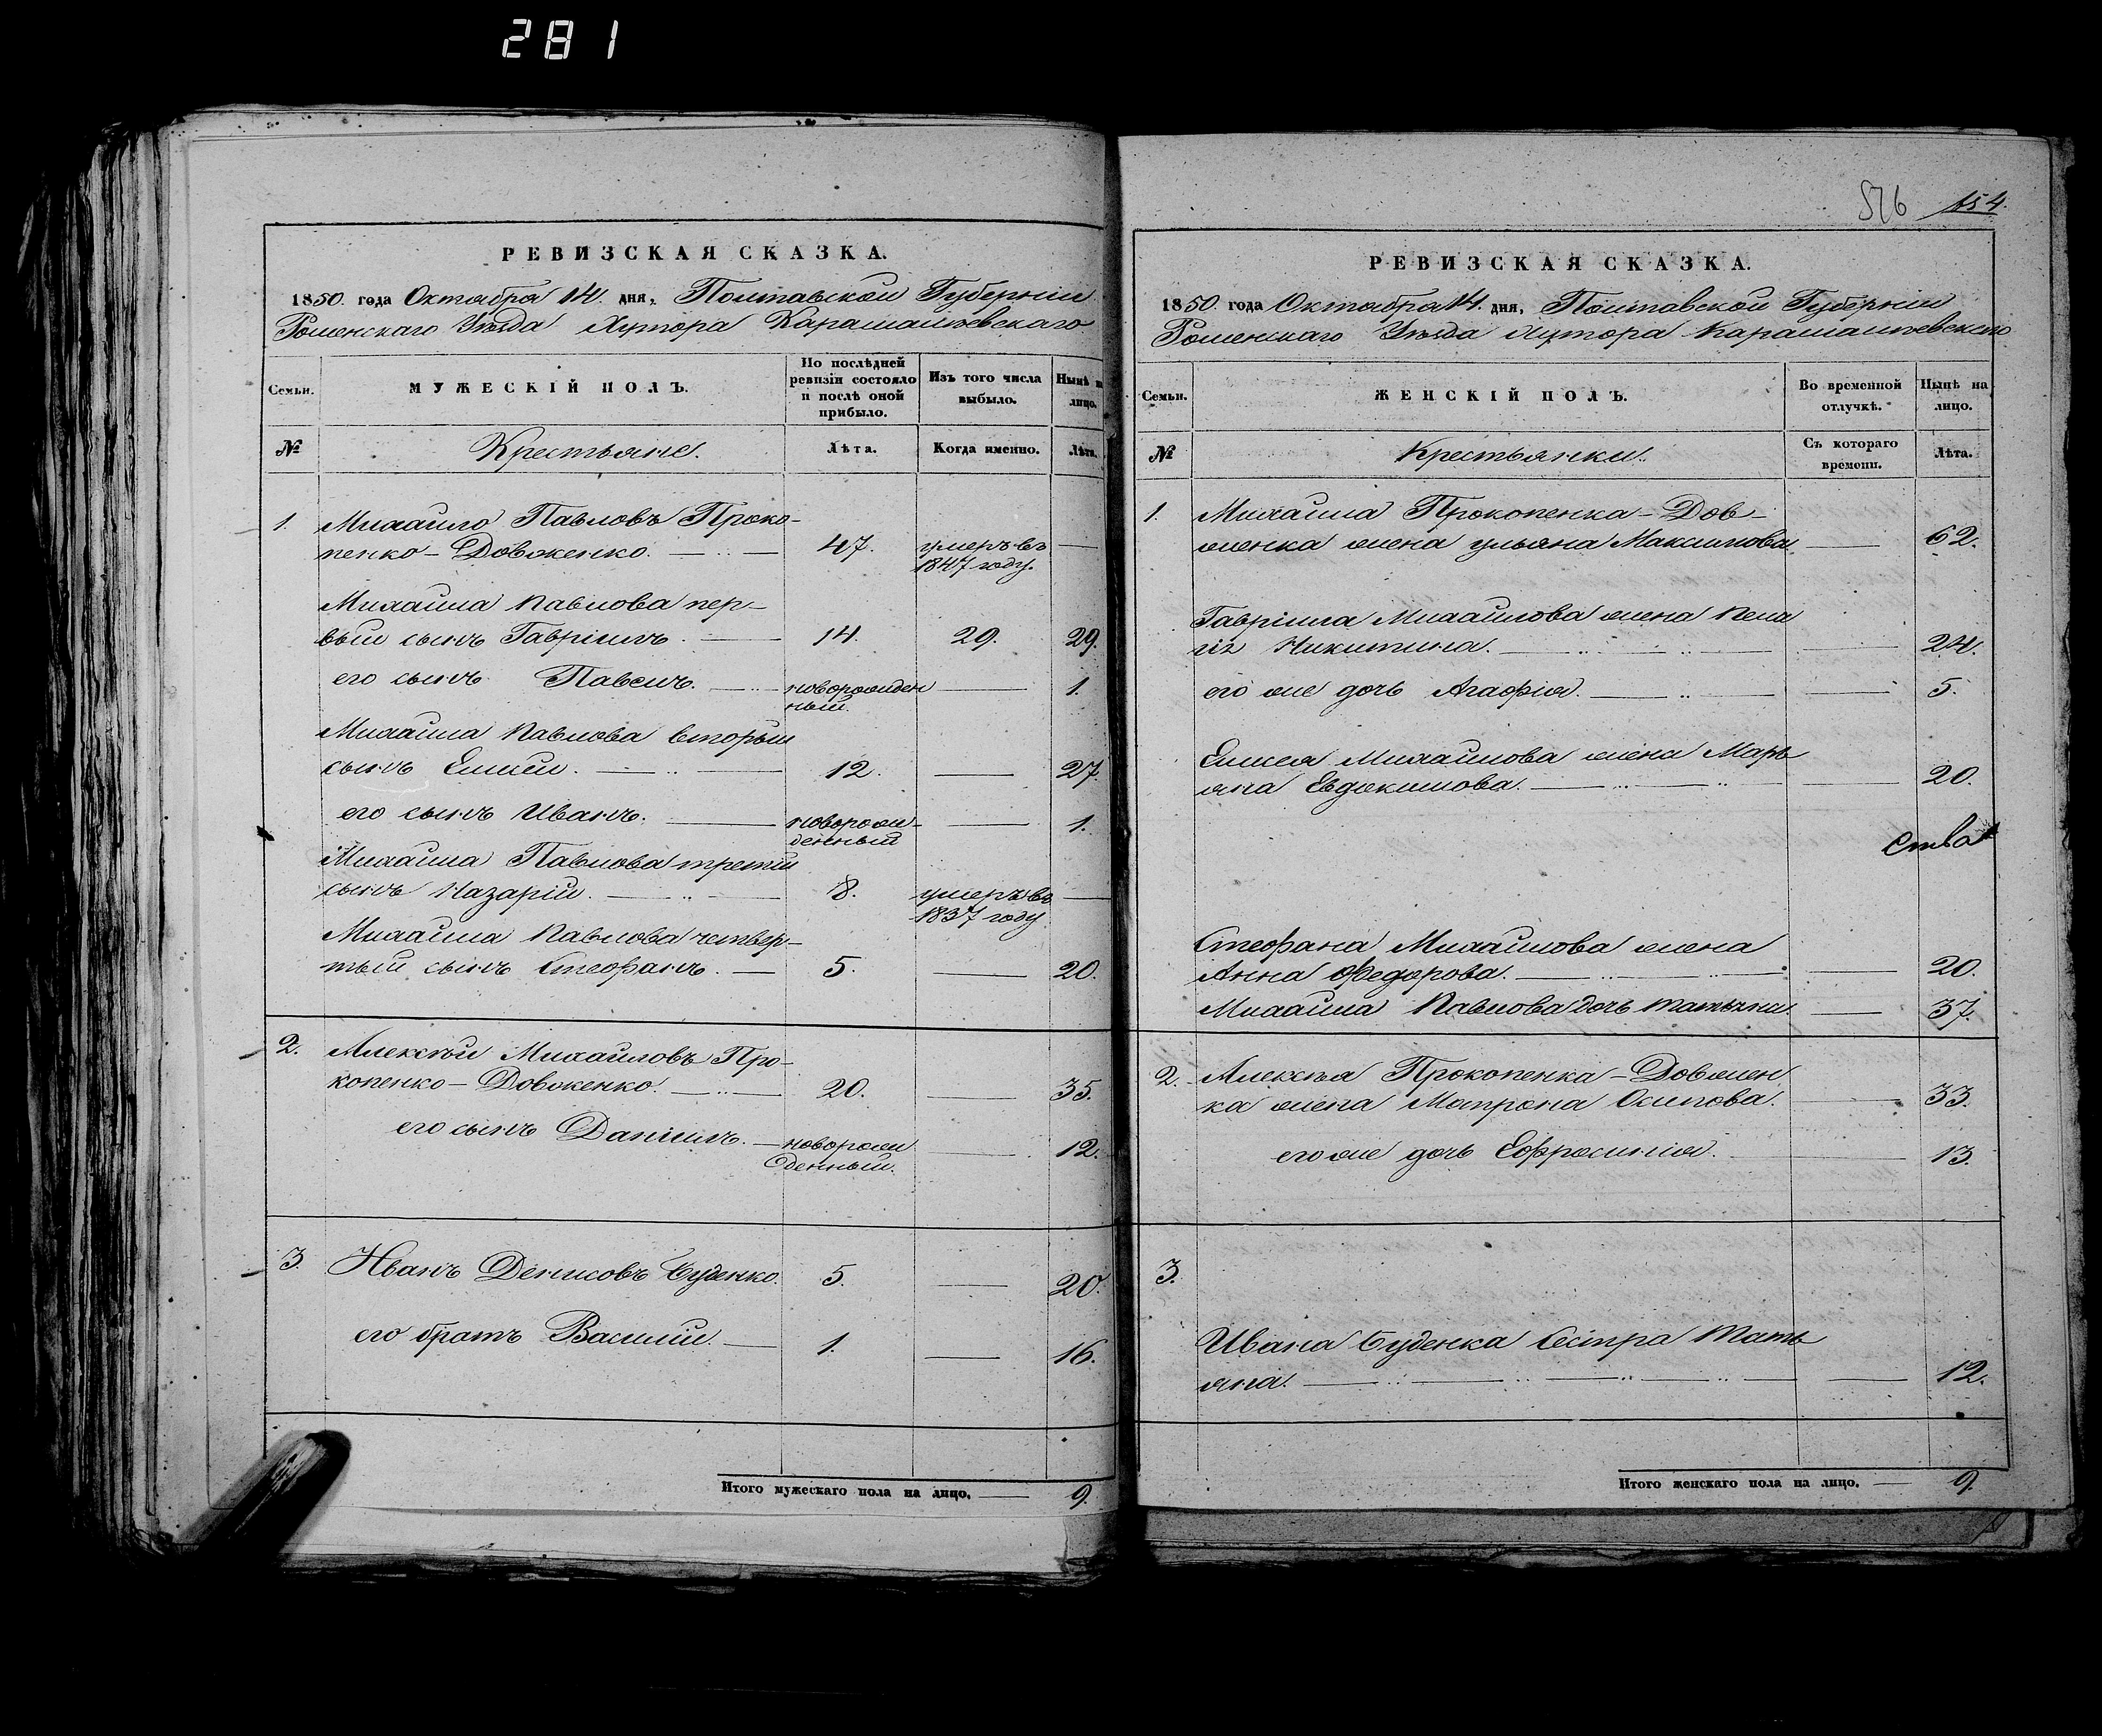 281
РЕВИЗСКАЯ СКАЗКА.
1850. года Октября 14. дня, Полтавской Губерніи
Роменскаго Уѣзда Хутора
Семьи.
МУЖЕСКІЙ ПОЛЪ.
По послѣдней ревизіи состояло и послѣ оной прибыло.
Изъ того числа выбыло.
Нынѣ на лицо.
№
Крестьяне.
Лѣта.
Когда именно.
Лѣта.
1. Михаило Павловъ Проко-
пенко-Довженко. 47. умеръ въ
1847 году.
Михаила Павлова пер-
вый сынъ Гавріилъ. 14. 29. 29.
его сынъ Павелъ. новорожден 1.
ный.
Михаила Павлова вторый
сынъ Елисей. 12. 27.
его сынъ Иванъ. новорож- 1.
денный
Михаила Павлова третій
сынъ Назарій. 8. умеръ въ
1837 году
Михаила Павлова четвер-
тый сынъ Стефанъ. 5. 20.
2. Алексѣй Михаиловъ Про-
копенко-Довженко. 20. 35.
его сынъ Даніилъ. новорож 12.
денный.
3. Иванъ Денисовъ Буденко. 5. 20.
его братъ Василій. 1. 16.
Итого мужескаго пола на лицо. 9.
576 154.
РЕВИЗСКАЯ СКАЗКА.
1850. года Октября 14. дня, Полтавской Губерніи
Роменскаго Уѣзда Хутора
Семьи.
ЖЕНСКІЙ ПОЛЪ.
Во временной отлучкѣ.
Нынѣ на лицо.
№
Крестьянки.
Съ котораго времени.
Лѣта.
1. Михаила Прокопенка-Дов-
женка жена Ульяна Максимова. 62.
Гавріила Михаилова жена Пела
гія Никитина. 24.
его же дочь Агафія. 5.
Елисея Михаилова жена Марь
яна Евдокимова. 20.
ства
Стефана Михаилова жена
Анна Федорова. 20.
Михаила Павлова дочь Татьяна. 37.
2. Алексѣя Прокопенка-Довжен
ка жена Матрона Осипова. 33.
его же дочь Ефросинія. 13.
3.
Ивана Буденка сестра Тать
яна. 12.
Итого женскаго пола на лицо. 9.